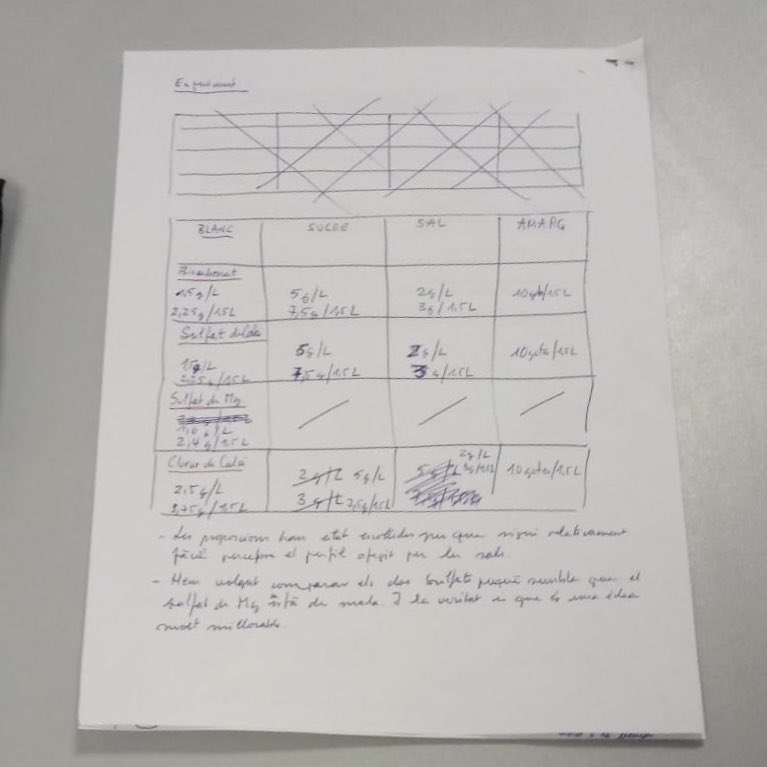 Experiment
BLANC SUCRE SAL AMARG
Bicarbonat
1,5g/L 5g/L 2g/L 10gots/1,5L
2,25g/1,5L 7,5g/1,5L 3g/1,5L
Sulfat de Calci
5g/L 2g/L 10gotes/1,5L
2,25g/1,5L 7,5g/1,5L 3g/1,5L
Sulfat de Mg
1,6g/L
2,4g/1,5L
Clorur de Calci 2g/L
2,5g/L 2g/L 5g/L 5g/L 3g/1,5L 10gotes/1,5L
3,75g/1,5L 3g/L 7,5g/1,5L
- Les proporcions han estat escollides per que sigui relativament
fàcil percebre el perfil ofegit per les sals.
- Hem volgut comparar els dos Sulfats perquè sembla que el
sulfat de Mg està de moda. I la veritat es que és una idea
molt millorable.